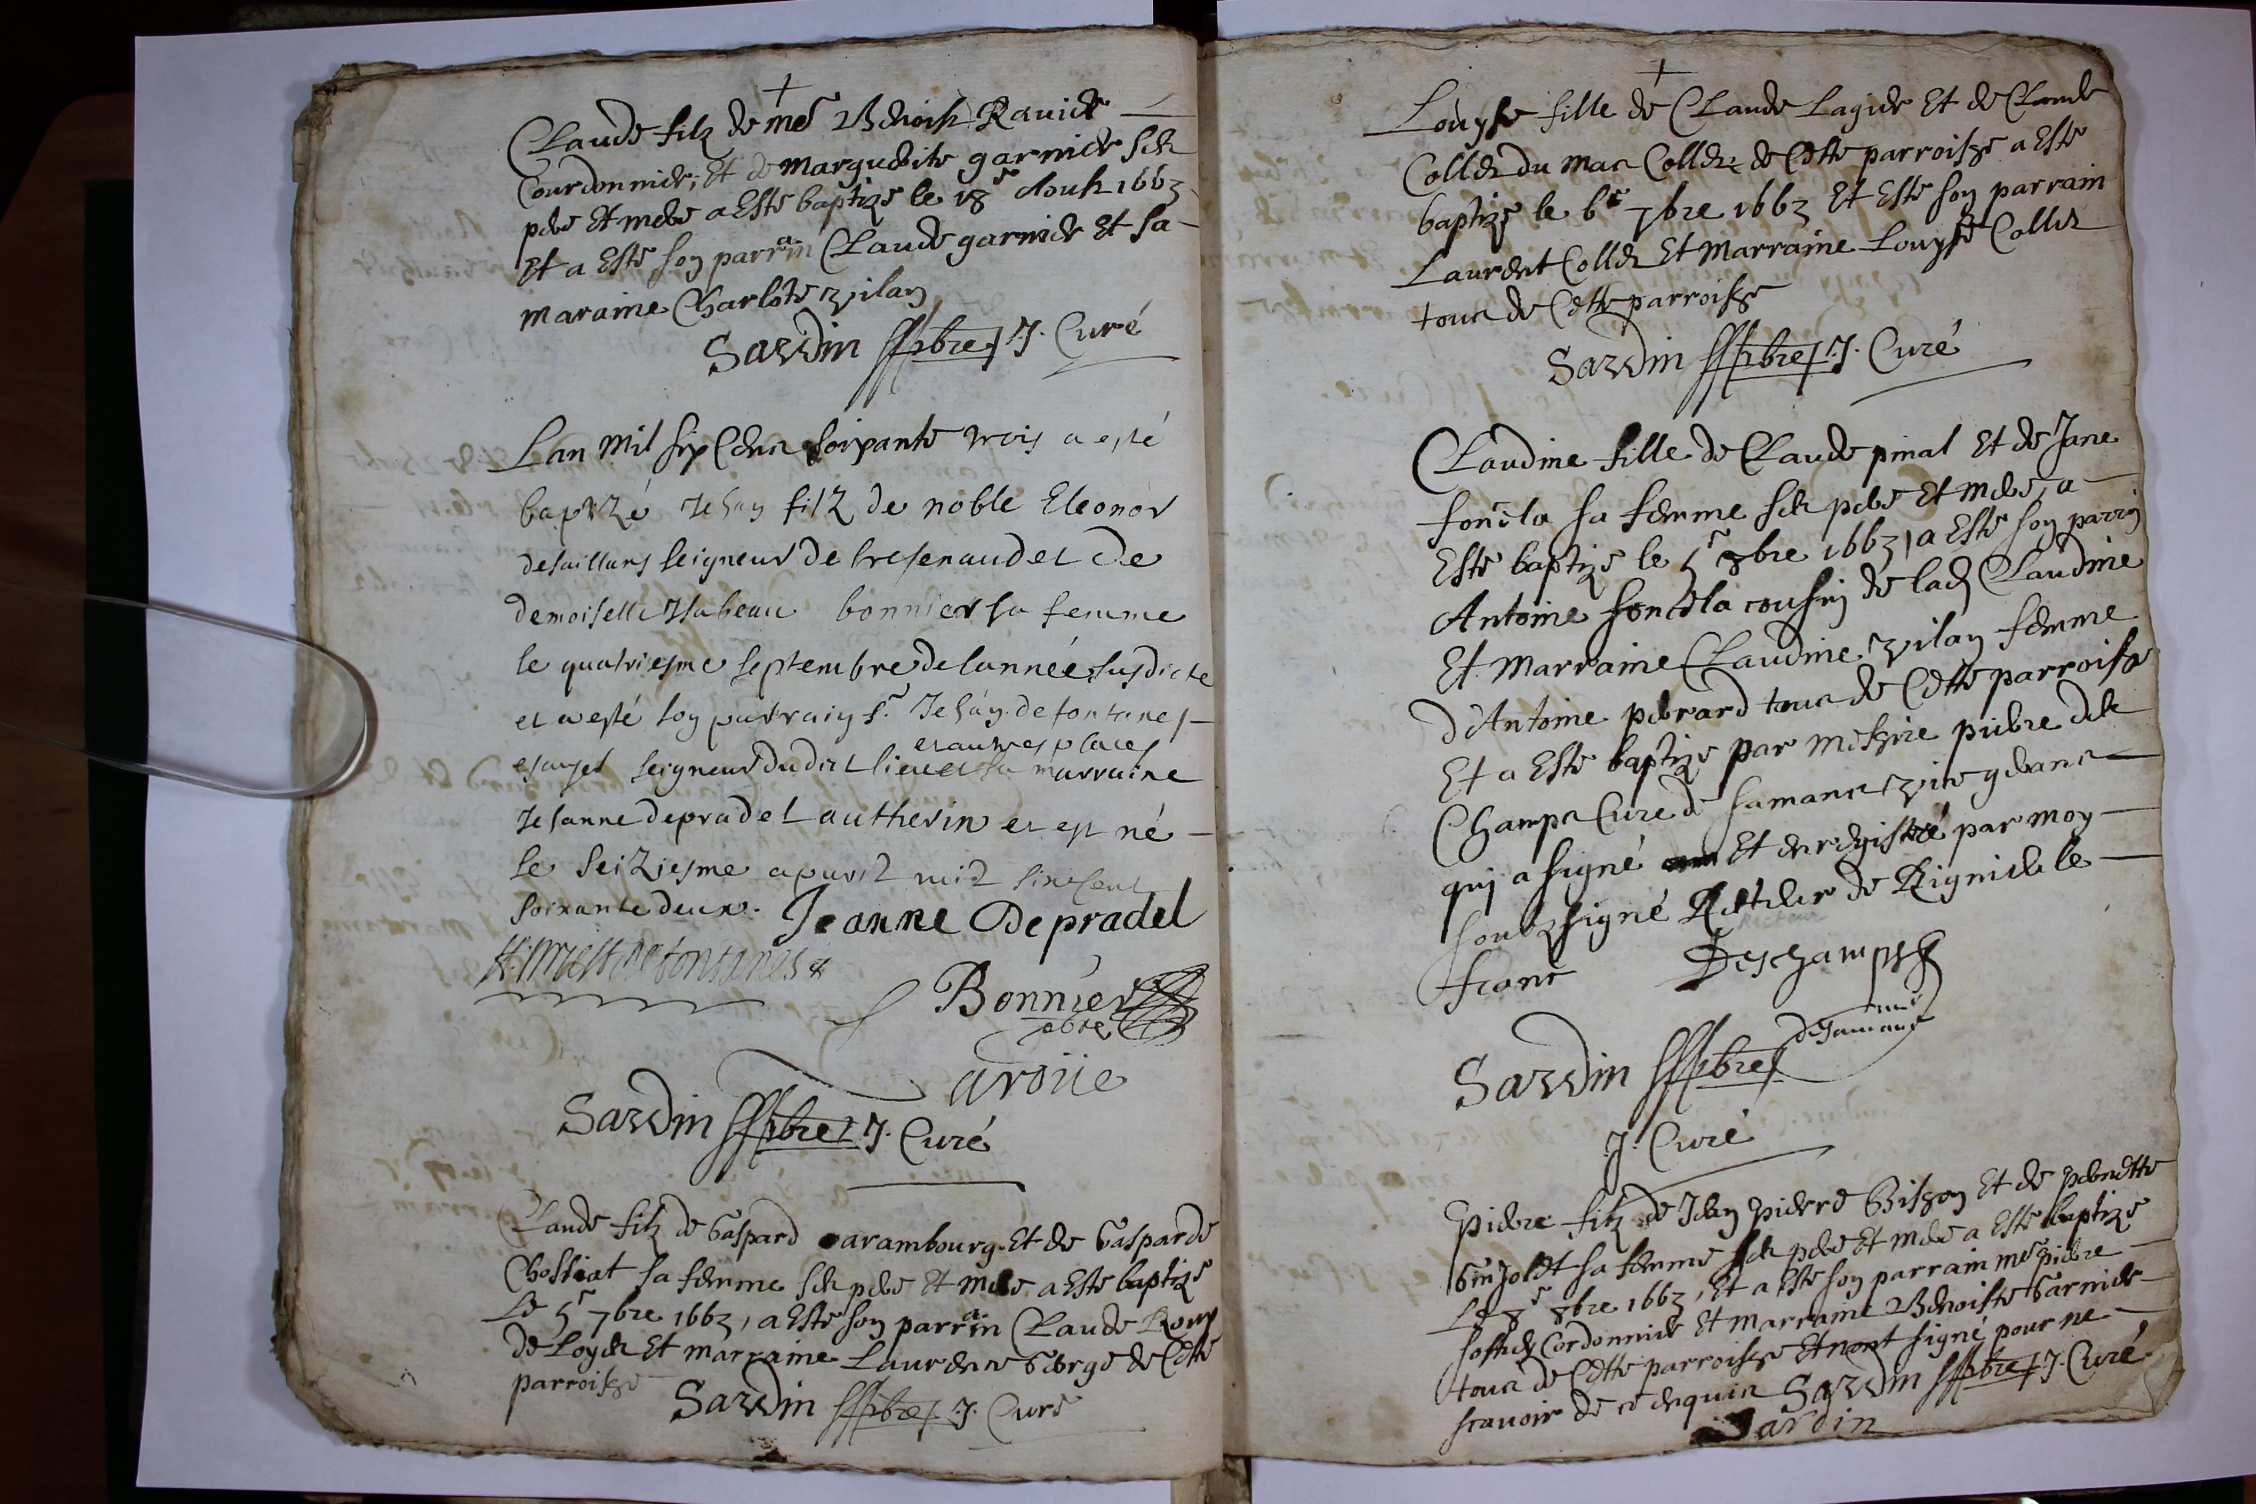 Claude filz de me Benoist Ravier
Courdonnier, Et de Marguerite garnier ses
pere Et mere a Este baptize le 18e Aoust 1663
Et a Este son parrain Claude garnier Et sa
maraine Charlote vilan
Sardin pbre J. Curé
Lan mil six Cens soixante trois a esté
baptizé Jehan filz de noble Eleonor
desaillans seigneur de bresenaud et de
demoiselle Isabeau bonnier sa femme
le quatriesme septembre de lannée susdicte
et a esté son parrain sr. Jehan de fontanes
et autres places
seigneur dudit lieu et sa marraine
Jehanne de pradel autherin et est né
le seiziesme apvril mil six cent
soixante deux. Jeanne De pradel
de fontanes
Bonnier
pbre
aroüe
Sardin pbre J. Curé
Claude filz de Gaspard Carambourg Et de Gasparde
Chossiat sa femme ses pere Et mere a Este baptize
Le 5e 7bre 1663, a Este son parrain Claude Roux
de Loyes Et marraine Laurence George de Cette
parroisse
Sardin pbre J. Curé
Louyse fille de Claude Lagier Et de Claude
Collet du mas Collet de Cette parroisse a Este
baptize le 6e 7bre 1663 Et Este son parrain
Laurent Collet Et Marraine Louyse Collet
tous de Cette parroisse
Sardin pbre J. Curé
Claudine fille de Claude pinal Et de Jane
foncela sa femme ses pere Et mere, a
Este baptize le 5e 8bre 1663, a Este son parrin
Antoine foncela cousin de lad Claudine
Et Marraine Claudine vilan femme
d'Antoine perard tous de Cette parroisse
Et a Este baptize par messire pierre des
Champs Cure de samans
qui a signé Et enregistré par moy
soubzsigné Recteur de Rignieu le
franc Deschamps
curé
de Samans
Sardin pbre
J. Curé
Pierre filz de Jean Pierre Bisson Et de pernette
Ginjolet sa femme ses pere Et mere a Este baptize
Le 8e 8bre 1663, Et a Este son parrain me pierre
Cordonnier Et marraine Benoiste Garnier
tous de Cette parroisse Et nont signé pour ne
scavoir de ce enquis Sardin pbre J. Curé
Sardin